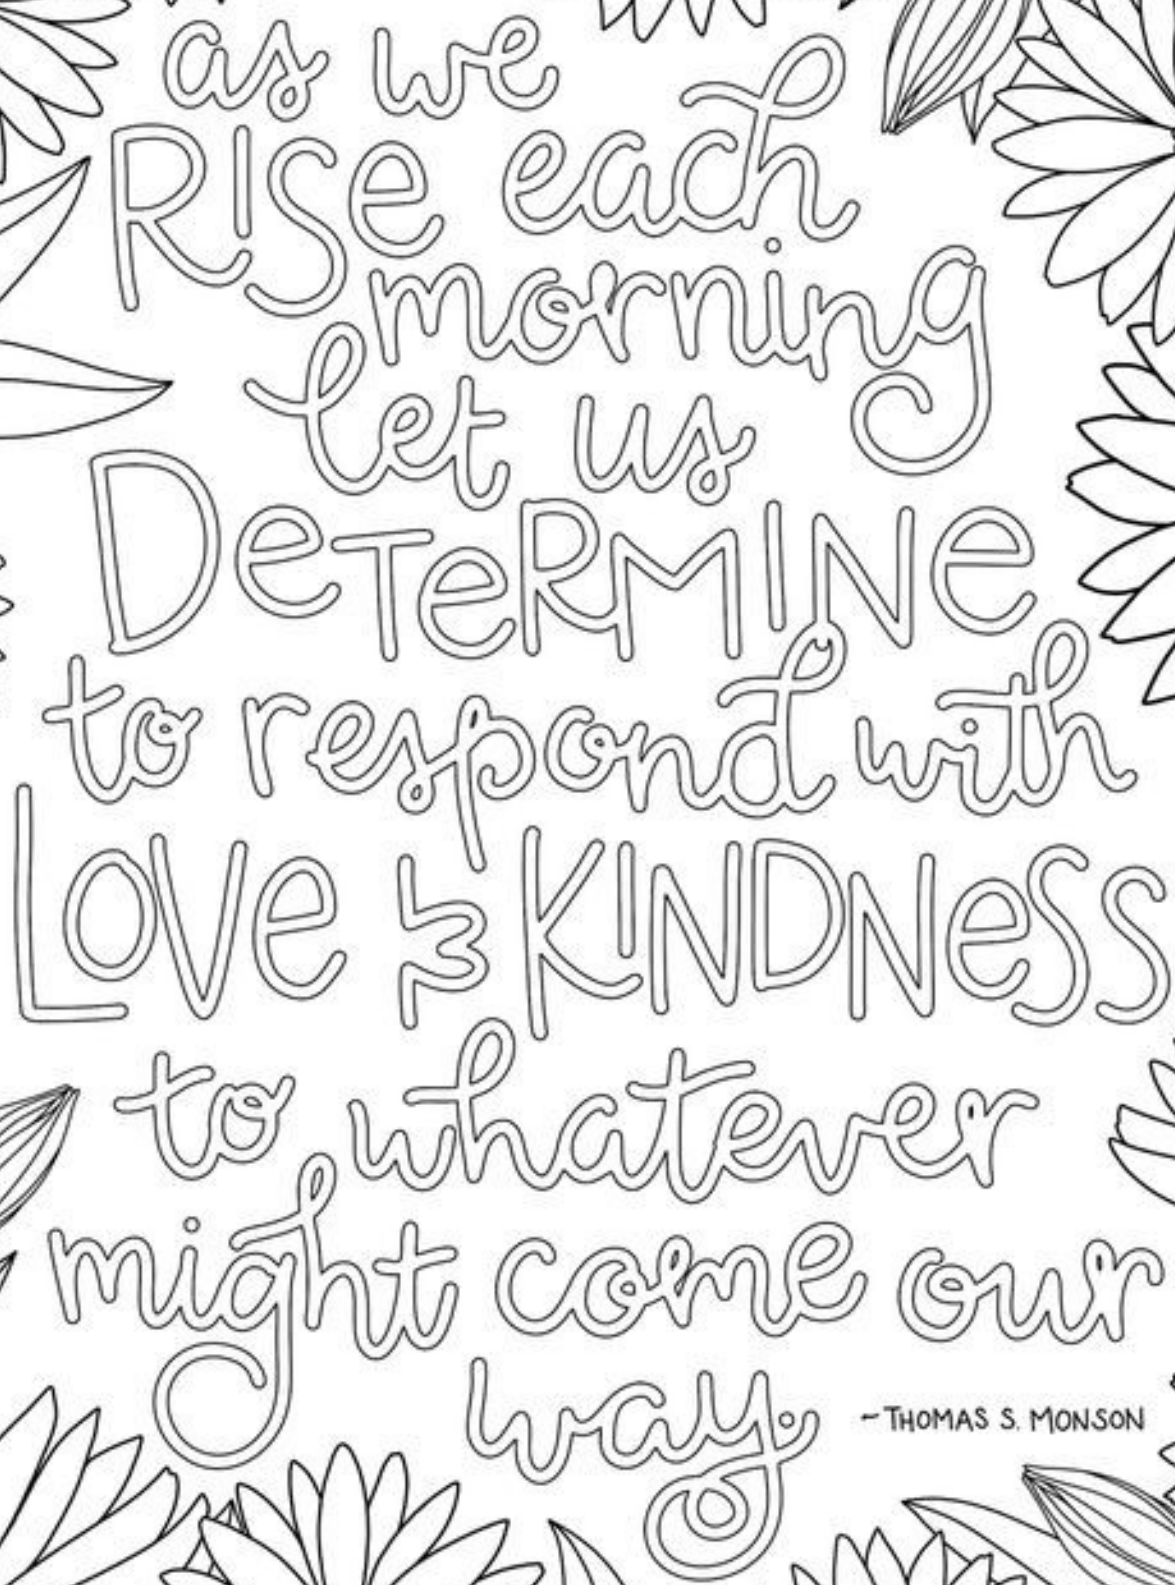 as we
RISe each
morning
let us
DeTeRMINe
to respond with
LOVe & KINDNeSS
to whatever
might come our
way.
~THOMAS S. MONSON